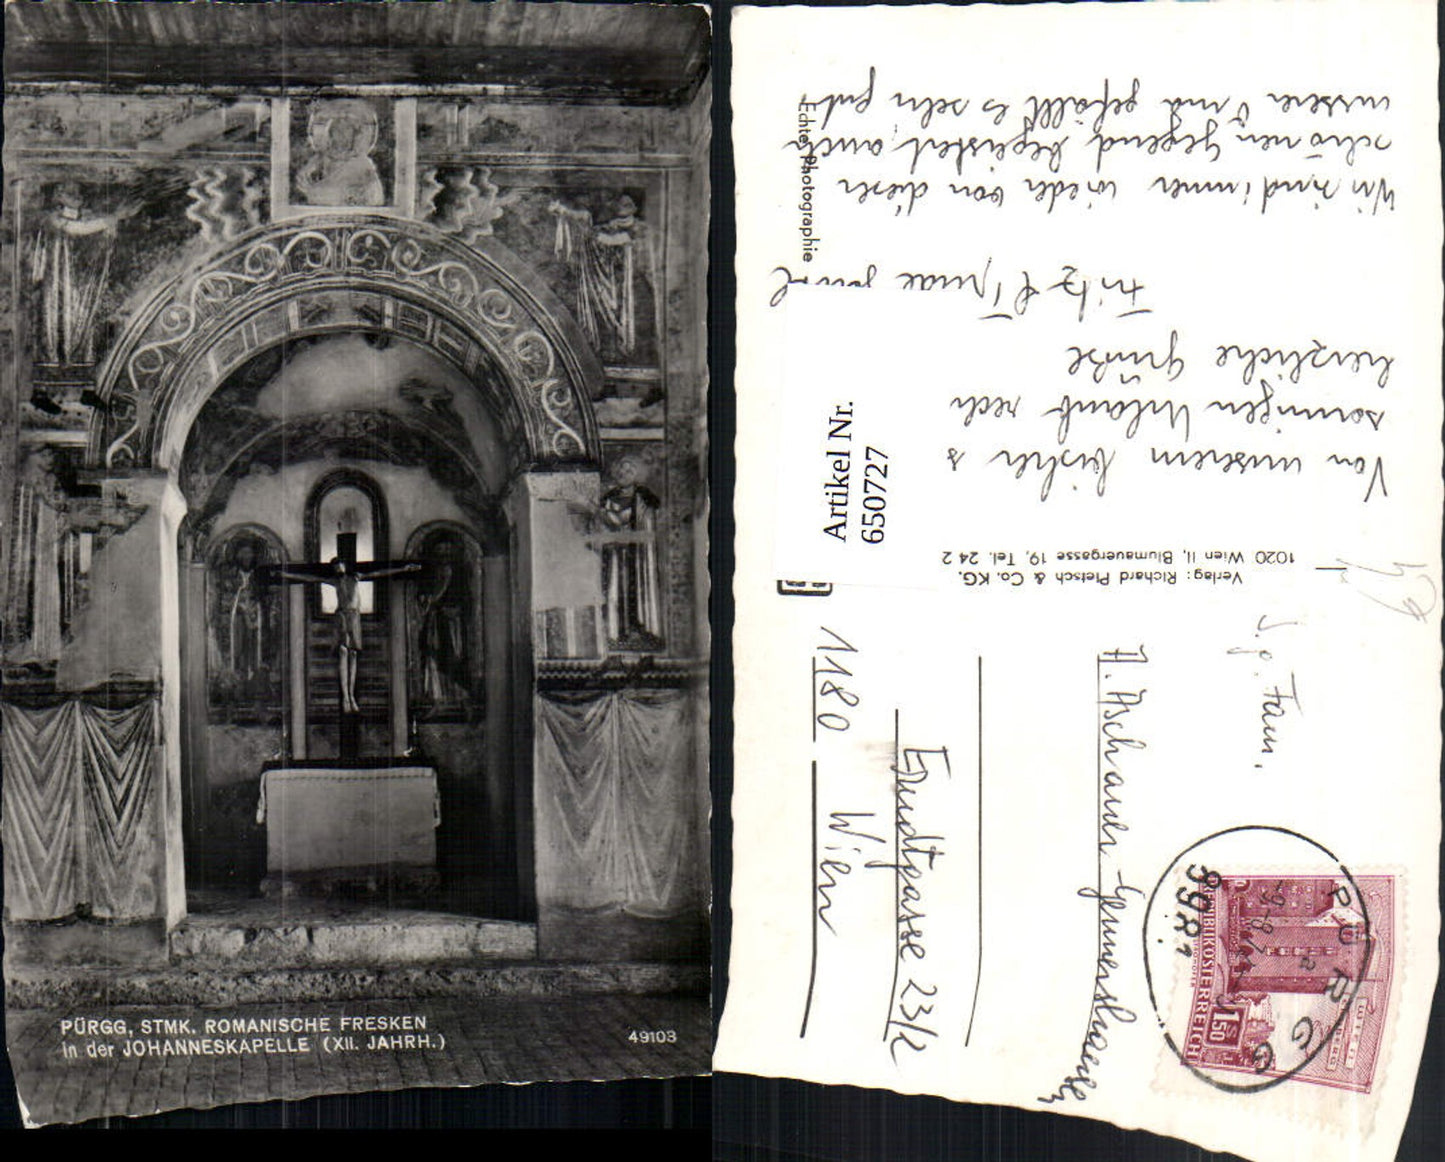 PÜRGG, STMK. ROMANISCHE FRESKEN
in der JOHANNESKAPELLE (XII. JAHRH.)
49103
Von unserem bisher s
sonnigen Urlaub rech
herzliche Grüße
Fritz &
Wir sind immer wieder von dieser
schönen Gegend begeistert, auch
unserer Oma gefällt es sehr gut.
Echte Photographie
Artikel Nr.
650727
Verlag: Richard Pietsch & Co. KG.
1020 Wien II, Blumauergasse 19, Tel. 24 2
Fam.
1180 Wien
PÜRGG
8981
REPUBLIK ÖSTERREICH
S 1.50